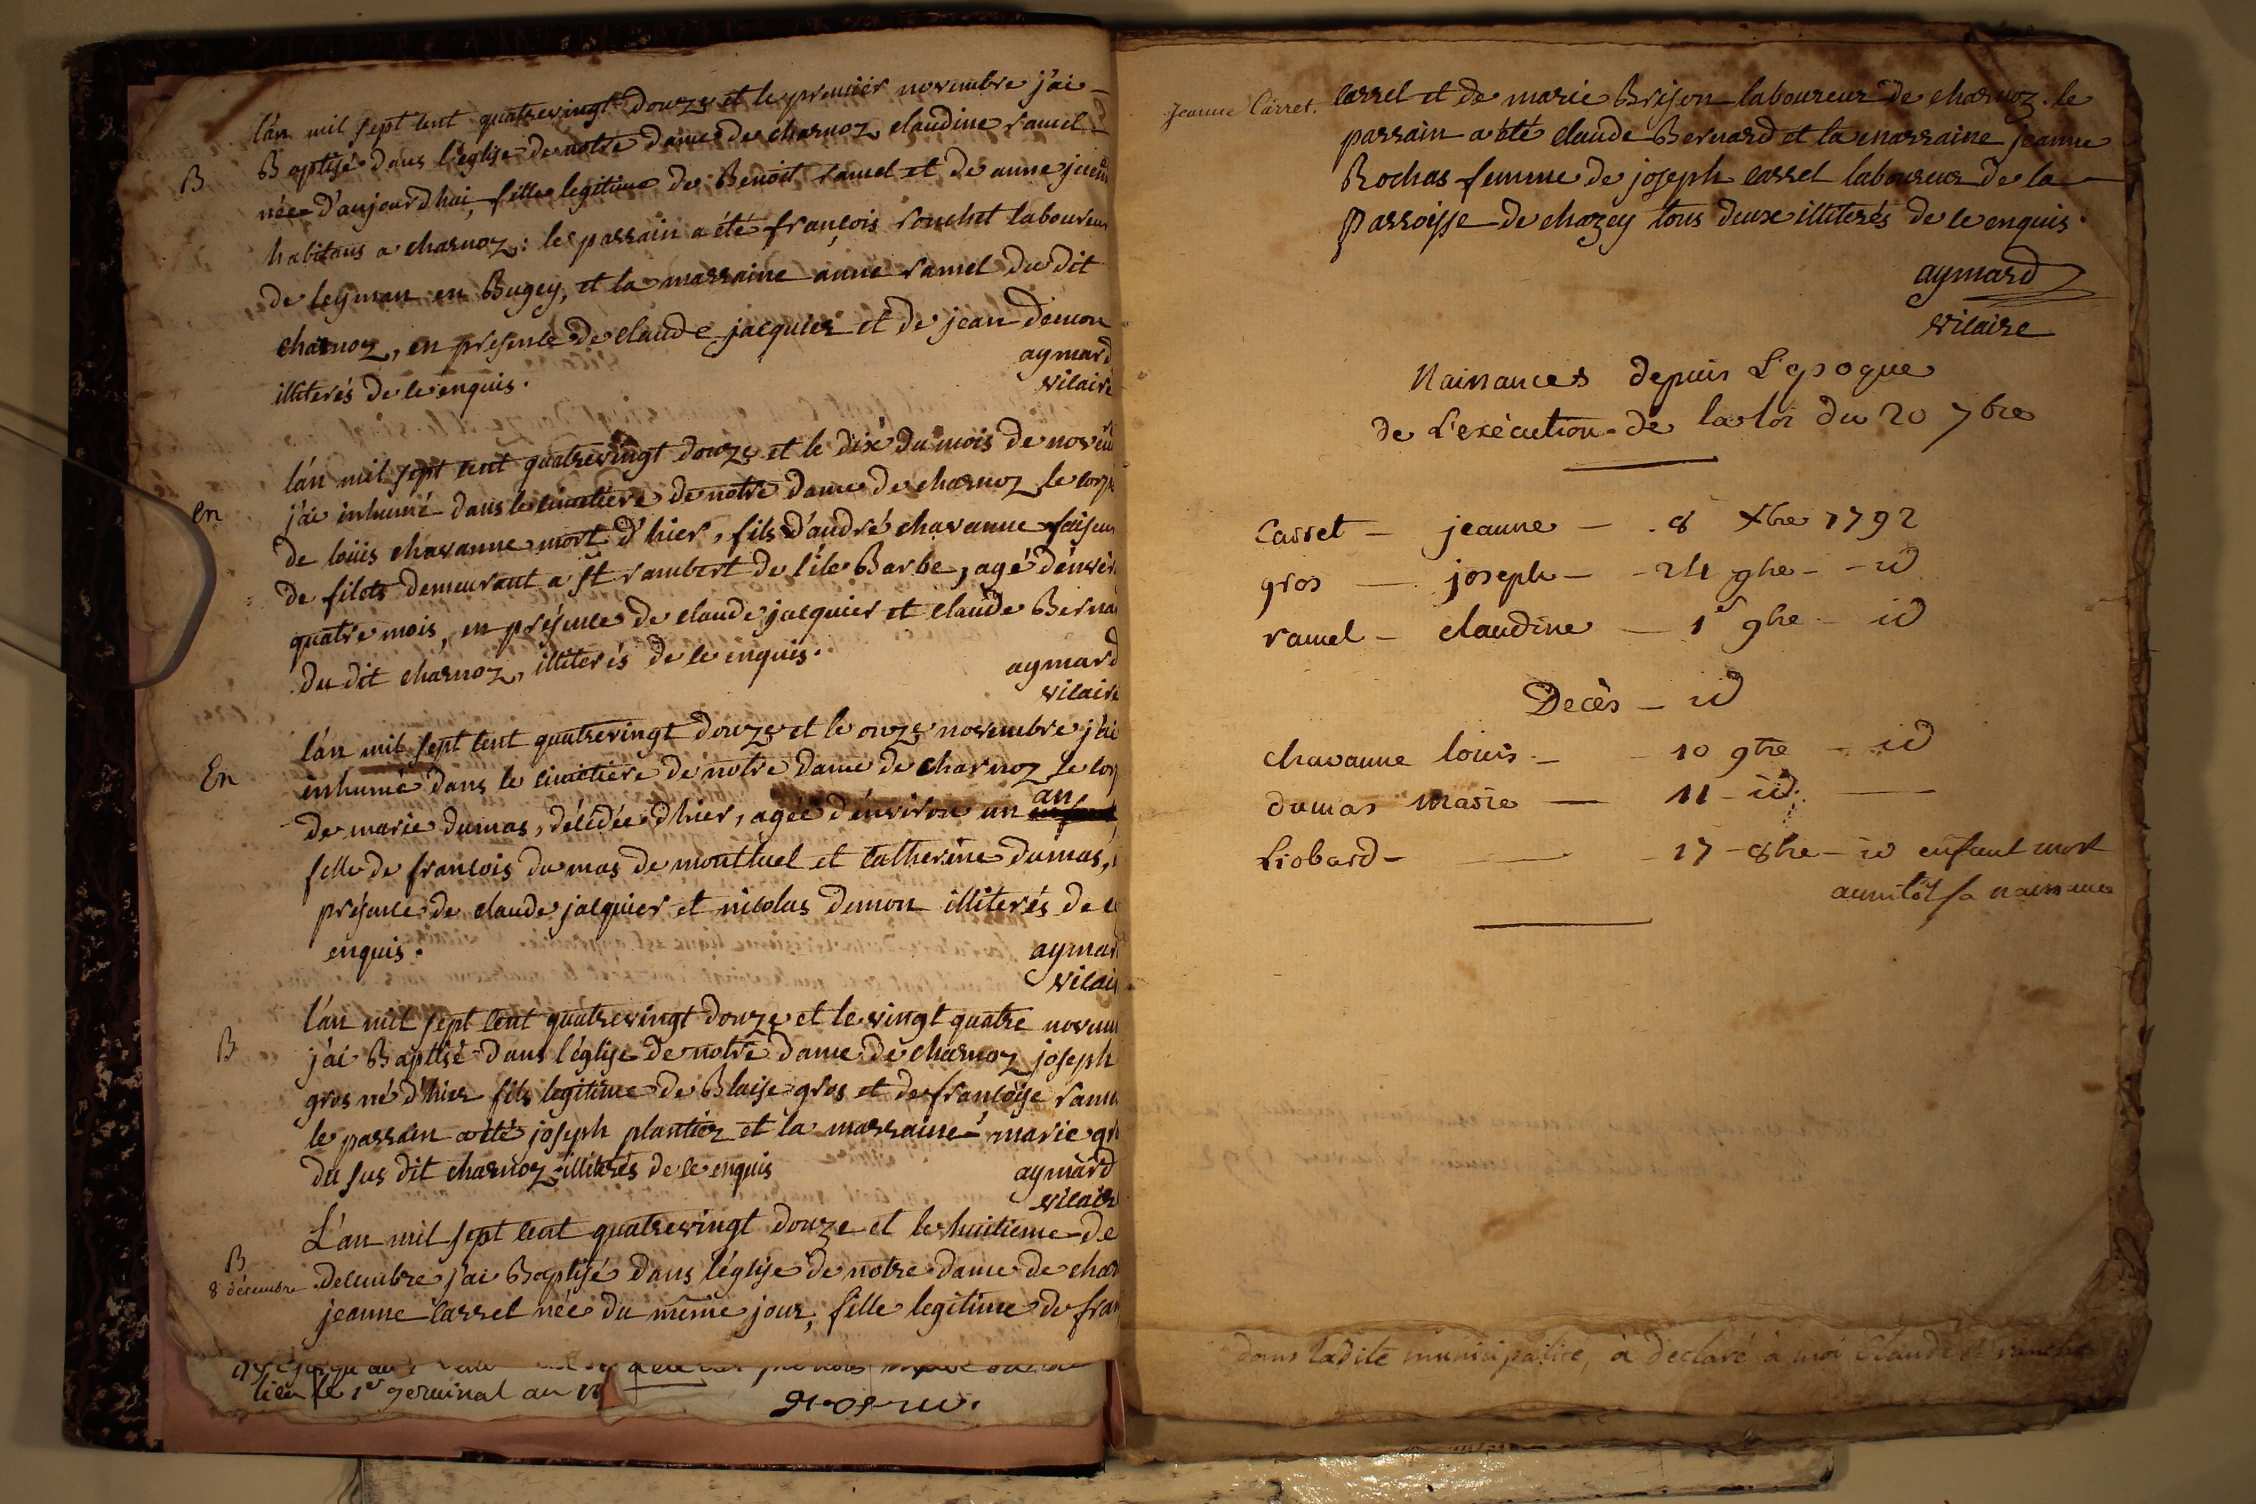 B
l'an mil sept cent quatrevingt douze et le premier novembre j'ai
Baptisé dans l'église de notre dame de charnoz claudine ramel
née d'aujourd'hui, fille legitime de Benoit ramel et de anne
habitans a charnoz: le parrain a été françois ronchet laboureur
de leyman en Bugey, et la marraine anne ramel du dit
charnoz, en présence de claude jacquier et de jean demon
illiterés de ce enquis.
aymard
vicaire
En
l'an mil sept cent quatrevingt douze et le dix du mois de
j'ai inhumé dans le cimetiere de notre dame de charnoz le
de loüis chavanne mort d'hier, fils d'andré chavanne
de filets demeurant a st rambert de l'ile Barbe, agé
quatre mois, en présence de claude jacquier et claude
du dit charnoz, illiterés de ce enquis.
aymard
vicaire
En
l'an mil sept cent quatrevingt douze et le onze novembre j'ai
inhumé dans le cimetiere de notre dame de charnoz le
de marie dumas, décédée d'hier, agée d'environ un an
fille de françois dumas de montluel et catherine dumas,
présence de claude jacquier et nicolas demon illiterés de
enquis.
aymard
vicair
B
l'an mil sept cent quatrevingt douze et le vingt quatre
j'ai Baptisé dans l'église de notre dame de charnoz joseph
gros né d'hier fils legitime de Blaise gros et de françoise
le parrain a été joseph plantier et la marraine marie
du sus dit charnoz illiterés de ce enquis
aymard
vicair
B
8 décembre
L'an mil sept cent quatrevingt douze et le huitieme de
decembre j'ai Baptisé dans l'église de notre dame de
jeanne carret née du même jour, fille legitime de
lieu le 1er germinal an
Jeanne Carret.
carret et de marie Brison laboureur de charnoz. le
parrain a été claude Bernard et la marraine jeanne
Rochas femme de joseph carret laboureur de la
parroisse de chazey tous deux illiterés de ce enquis.
aymard
vicaire
Naissances depuis L'époque
de L'exécution de la loi du 20 7bre
Carret - jeanne - 8 Xbre 1792
gros - joseph - 24 9bre - id
ramel - claudine - 1er 9bre - id
Decès - id
chavanne louis - 10 9bre - id
dumas marie - 11 - id.
Liobard - 17 - 8bre - id enfant mort
aussitôt sa naissance
dans ladite municipalité, à declaré à moi Claude